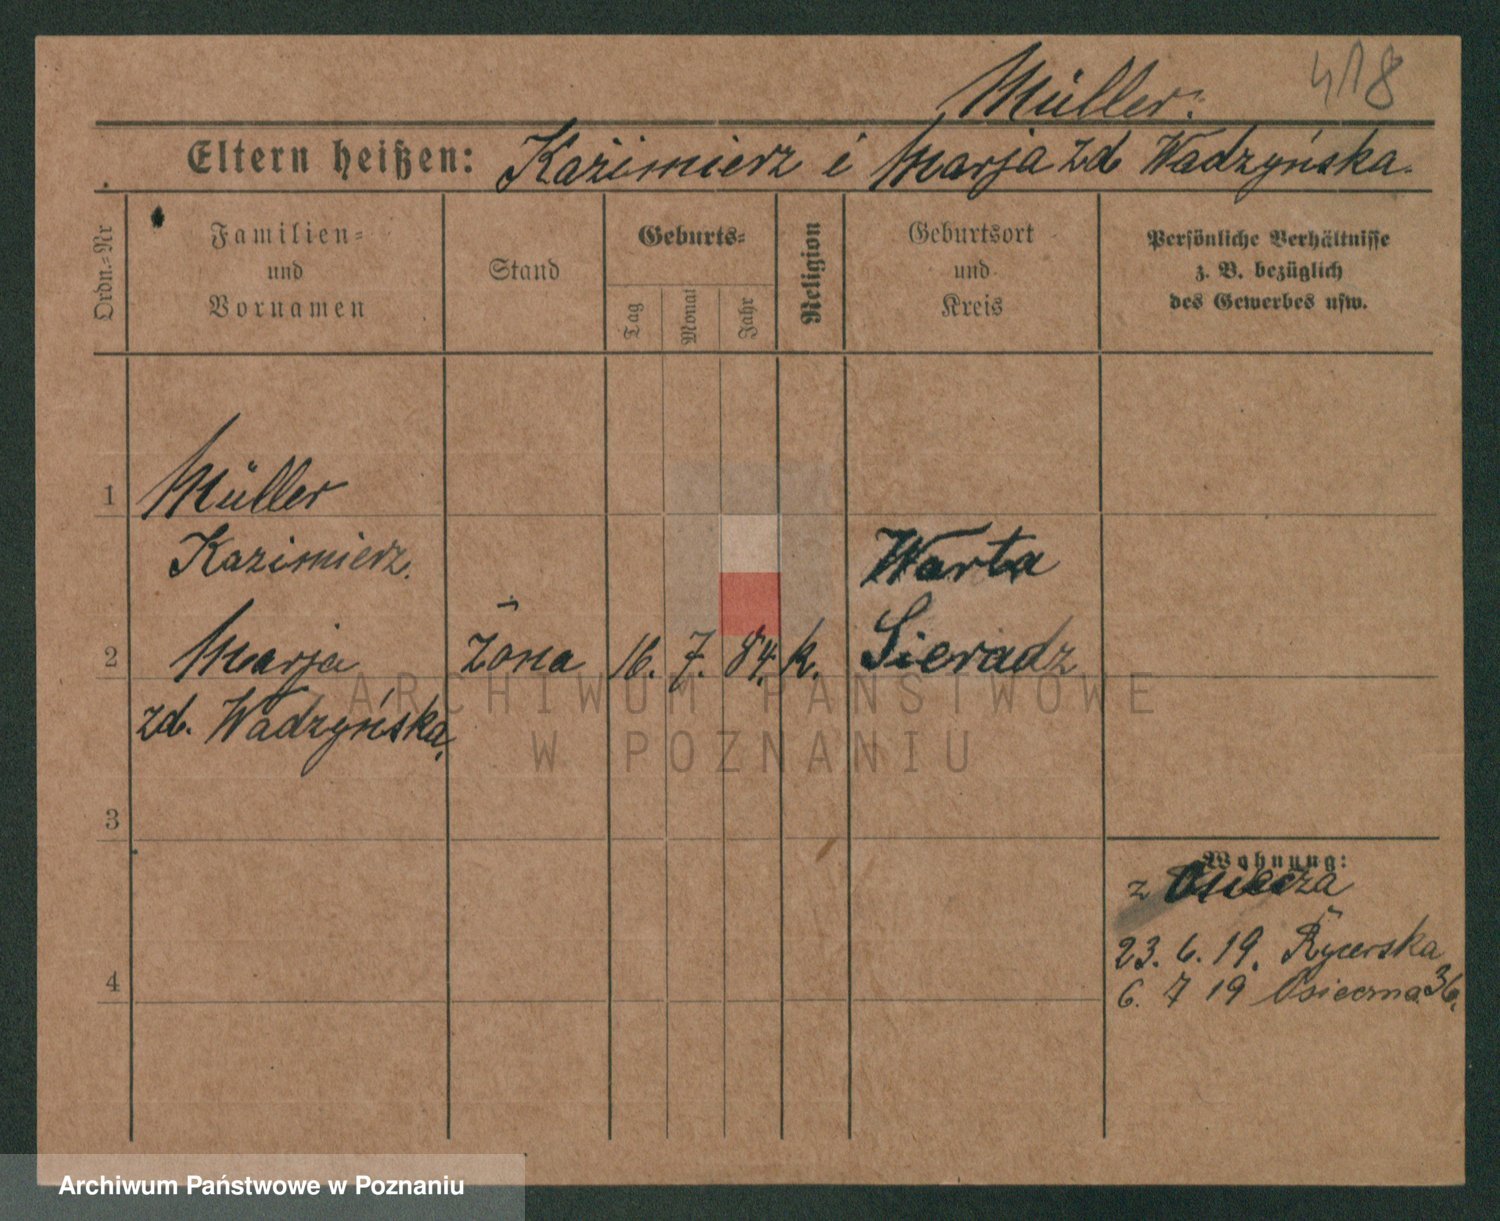 418
Müller.
Eltern heißen: Kazimierz i Marja zd Wadzyńska.
Ordn.=Nr
Familien=
und
Vornamen
Stand
Geburts=
Tag
Monat
Jahr
Religion
Geburtsort
und
Kreis
Persönliche Verhältnisse
z. B. bezüglich
des Gewerbes usw.
1 Müller
Kazimierz.
Warta
2 Marja żona 16. 7. 84. k. Sieradz
zd. Wadzyńska,
ARCHIWUM PAŃSTWOWE
W POZNANIU
3
Wohnung:
z
23. 6. 19. Rycerska
4
6. 7 19 Osieczna 36.
Archiwum Państwowe w Poznaniu